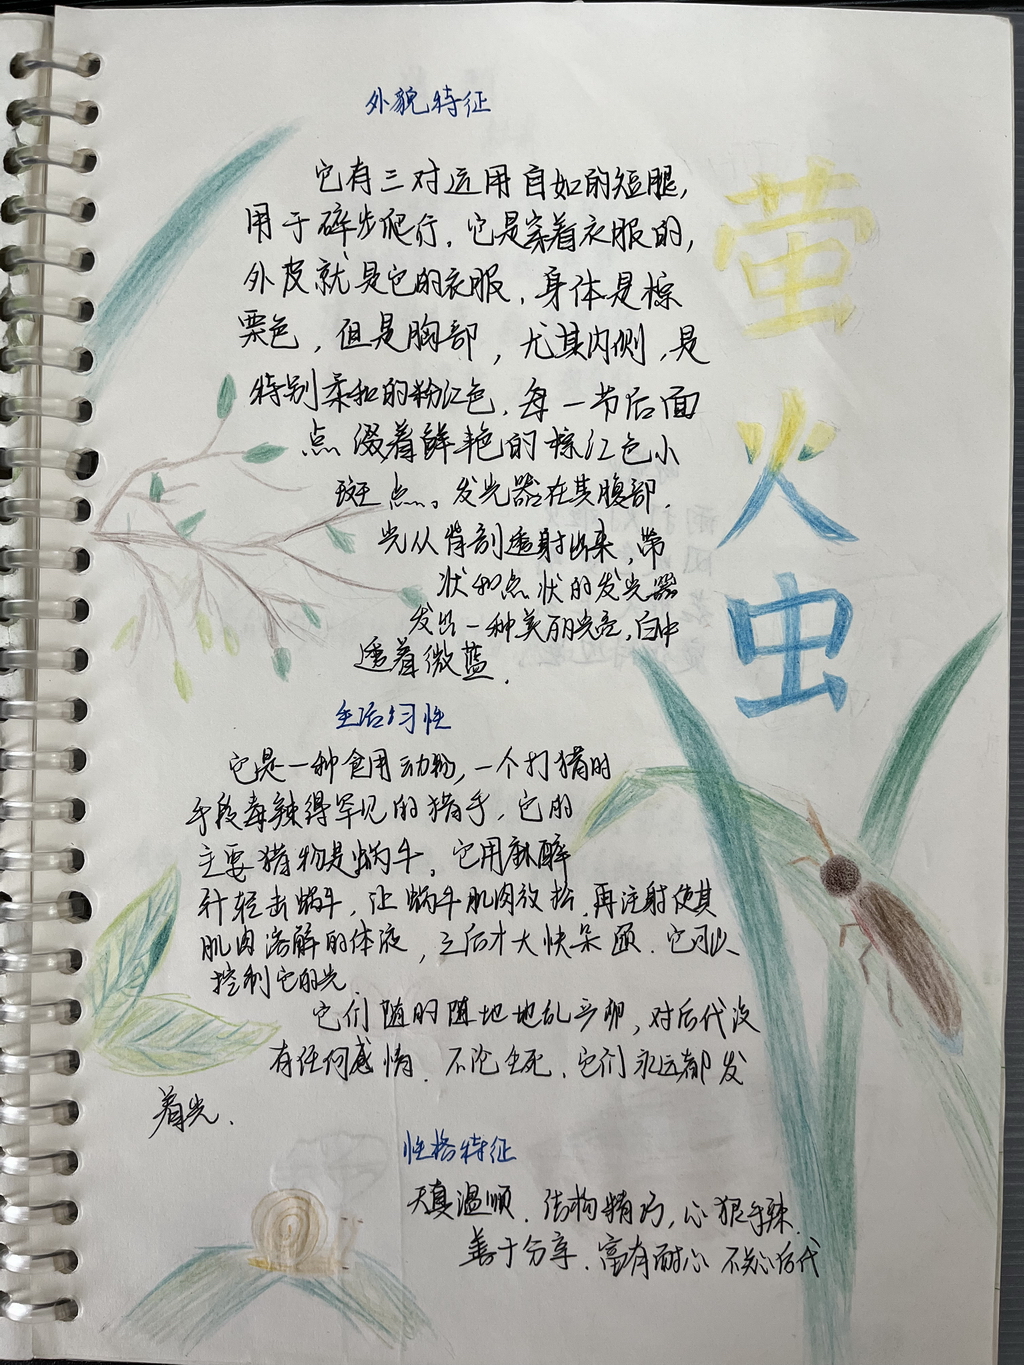 萤火虫
外貌特征
它有三对运用自如的短腿,
用于碎步爬行.它是穿着衣服的,
外皮就是它的衣服.身体是棕
栗色,但是胸部,尤其内侧,是
特别柔和的粉红色.每一节后面
点缀着鲜艳的棕红色小
斑点。发光器在其腹部.
光从背部透射出来,带
状和点状的发光器
发出一种美丽光亮,白中
透着微蓝.
生活习性
它是一种食用动物,一个打猎时
手段毒辣得罕见的猎手.它的
主要猎物是蜗牛.它用麻醉
针轻击蜗牛,让蜗牛肌肉放松.再注射使其
肌肉溶解的体液,之后才大快朵颐.它可以
控制它的光.
它们随时随地地乱产卵,对后代没
有任何感情.不论生死.它们永远都发
着光.
性格特征
天真温顺.结构精巧,心狠手辣.
善于分享.富有耐心 不关心后代